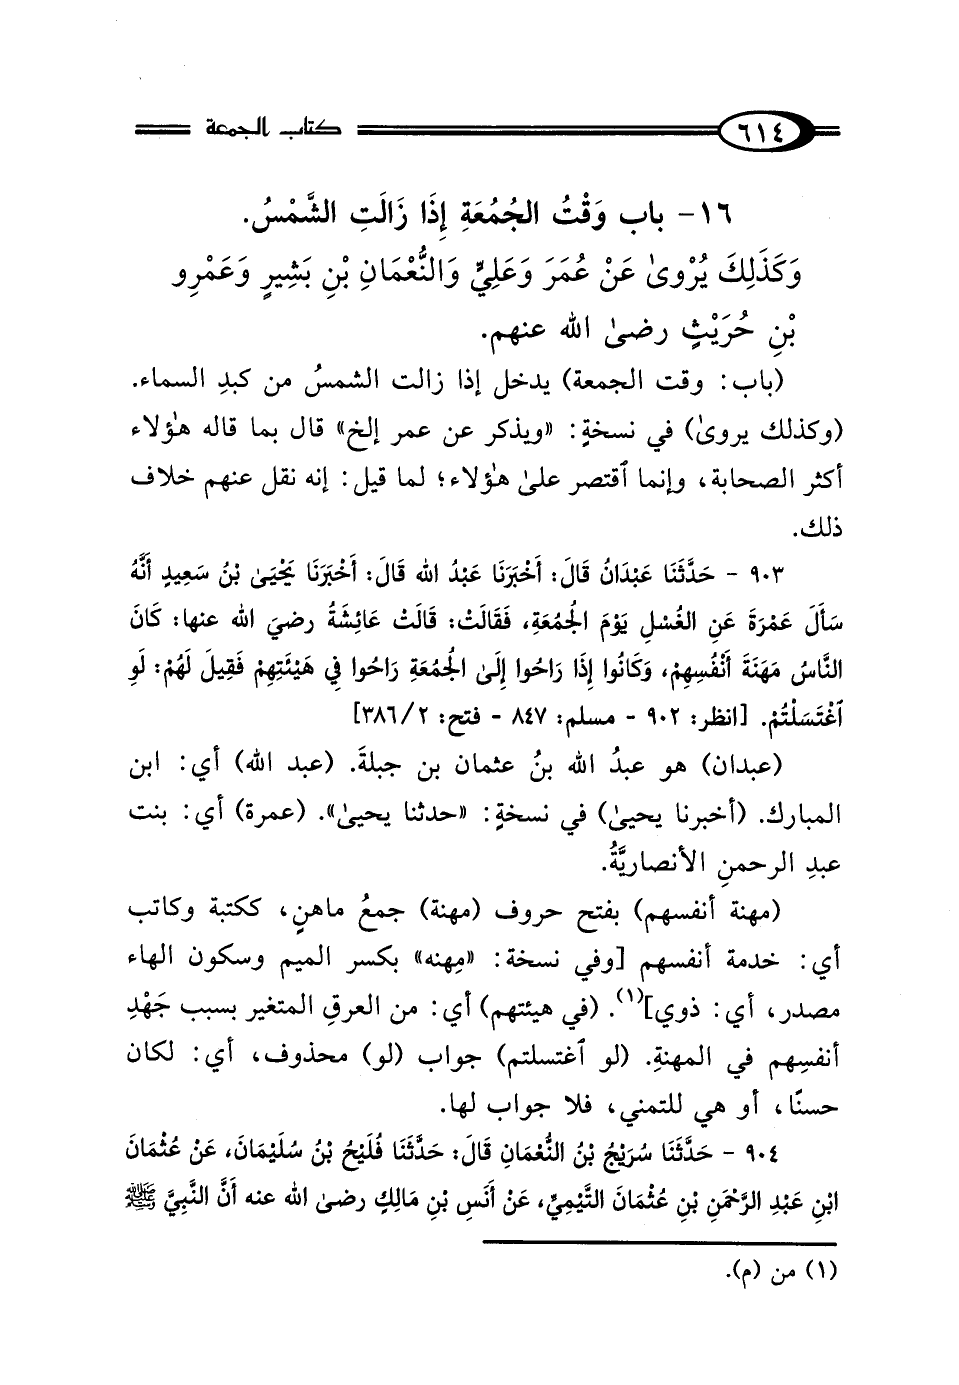 ٦١٤ كتاب الجمعة
١٦- باب وَقْتُ الجُمُعَةِ إِذَا زَالَتِ الشَّمْسُ.
وَكَذَلِكَ يُرْوىٰ عَنْ عُمَرَ وَعَلِيٍّ وَالنُّعْمَانِ بْنِ بَشِيرٍ وَعَمْرِو
بْنِ حُرَيْثٍ رضىٰ الله عنهم.
(باب: وقت الجمعة) يدخل إذا زالت الشمسُ من كبدِ السماء.
(وكذلك يروىٰ) في نسخةٍ: «ويذكر عن عمر إلخ» قال بما قاله هؤلاء
أكثر الصحابة، وإنما ٱقتصر علىٰ هؤلاء؛ لما قيل: إنه نقل عنهم خلاف
ذلك.
٩٠٣ - حَدَّثَنَا عَبْدَانُ قَالَ: أَخْبَرَنَا عَبْدُ الله قَالَ: أَخْبَرَنَا يَحْيَىٰ بْنُ سَعِيدٍ أَنَّهُ
سَأَلَ عَمْرَةَ عَنِ الغُسْلِ يَوْمَ الجُمُعَةِ، فَقَالَتْ: قَالَتْ عَائِشَةُ رضيَ الله عنها: كَانَ
النَّاسُ مَهَنَةَ أَنْفُسِهِمْ، وَكَانُوا إِذَا رَاحُوا إِلَىٰ الجُمُعَةِ رَاحُوا فِي هَيْئَتِهِمْ فَقِيلَ لَهُمْ: لَوِ
ٱغْتَسَلْتُمْ. [انظر: ٩٠٢ - مسلم: ٨٤٧ - فتح: ٣٨٦/٢]
(عبدان) هو عبدُ الله بنُ عثمان بن جبلةَ. (عبد الله) أي: ابن
المبارك. (أخبرنا يحيىٰ) في نسخةٍ: «حدثنا يحيىٰ». (عمرة) أي: بنت
عبدِ الرحمنِ الأنصاريَّةُ.
(مهنة أنفسهم) بفتح حروف (مهنة) جمعُ ماهنٍ، ككتبة وكاتب
أي: خدمة أنفسهم [وفي نسخة: «مِهنه» بكسر الميم وسكون الهاء
مصدر، أي: ذوي](١). (في هيئتهم) أي: من العرقِ المتغير بسبب جَهْدِ
أنفسِهم في المهنةِ. (لو ٱغتسلتم) جواب (لو) محذوف، أي: لكان
حسنًا، أو هي للتمني، فلا جواب لها.
٩٠٤ - حَدَّثَنَا سُرَيْجُ بْنُ النُّعْمَانِ قَالَ: حَدَّثَنَا فُلَيْحُ بْنُ سُلَيْمَانَ، عَنْ عُثْمَانَ
ابْنِ عَبْدِ الرَّحْمَنِ بْنِ عُثْمَانَ التَّيْمِيِّ، عَنْ أَنَسِ بْنِ مَالِكٍ رضىٰ الله عنه أَنَّ النَّبِيَّ ﷺ
(١) من (م).